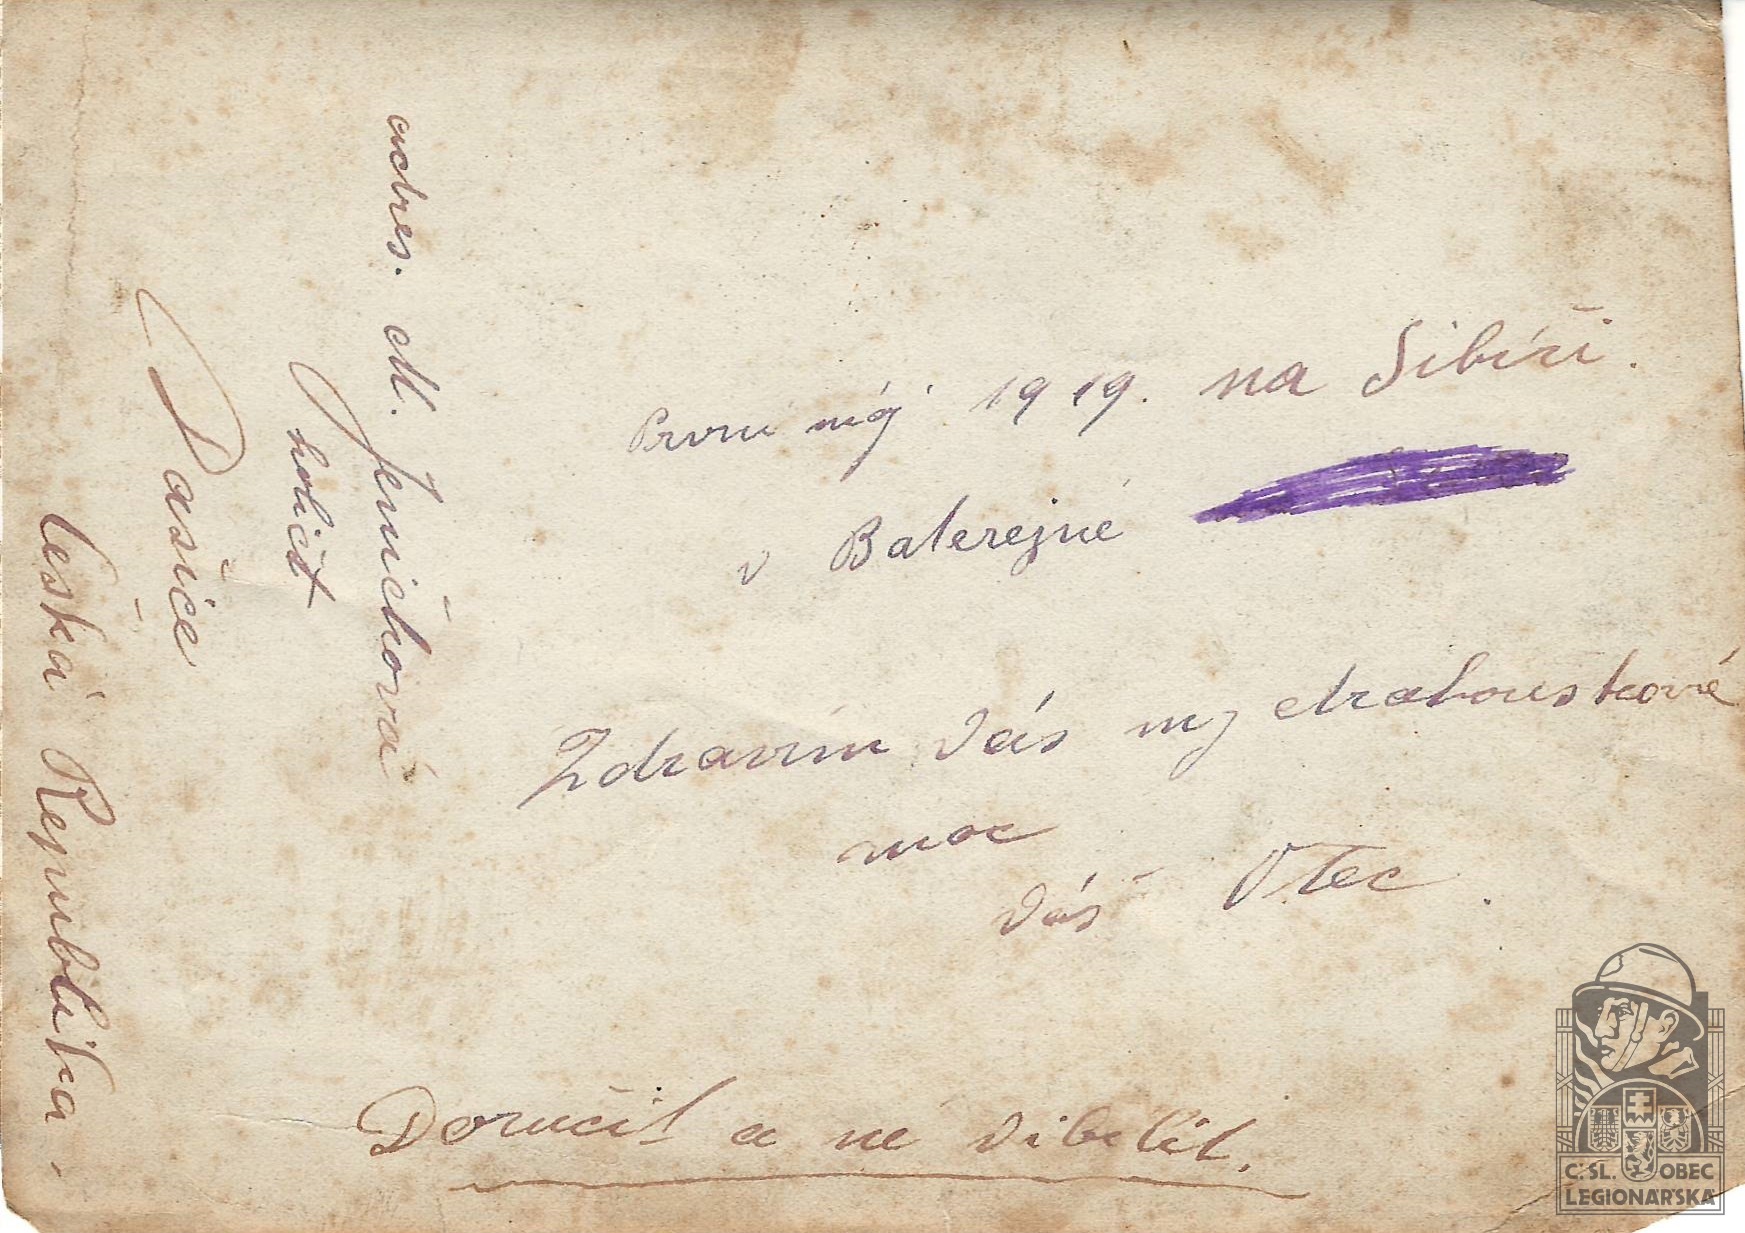 adres. M. Jeničková
holič
Dašice
česká Republika.
První máj 1919. na Sibíři.
v Baterejné
Zdravím Vás my drahouskové
moc
Váš Otec.
Doručit a né vibilit.
Č.SL. OBEC
LEGIONÁŘSKÁ